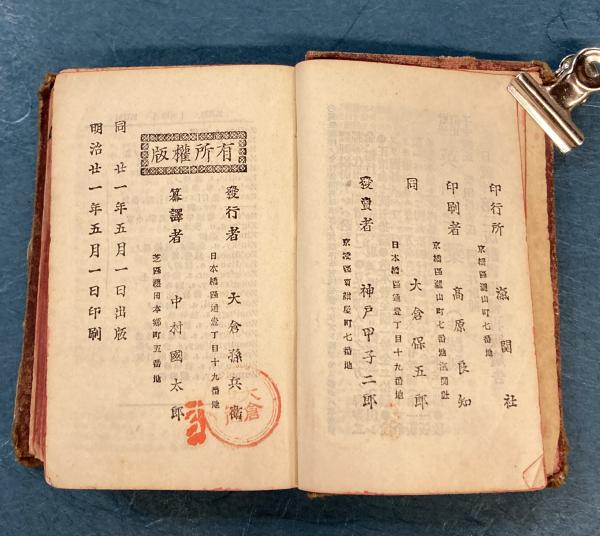 明治廿一年五月一日印刷
同 廿一年五月一日出版
版權所有
芝區櫻田本郷町五番地
纂譯者 中村國太郎
日本橋區通壹丁目十九番地
發行者 大倉孫兵衛
大倉
京橋區南紺屋町七番地
發賣者 神戸甲子二郎
日本橋區通壹丁目十九番地
同 大倉保五郎
京橋區瀧山町七番地
印刷者 高原良知
京橋區瀧山町七番地
印行所 社